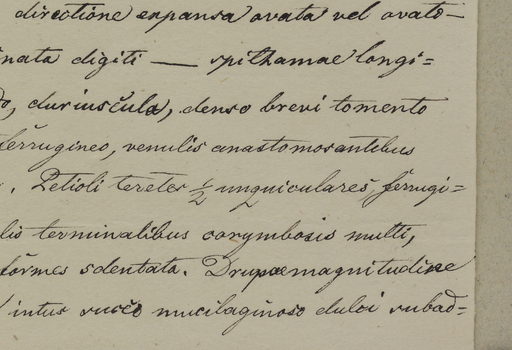 directione expansa ovata vel ovato-
nata digiti — spithamae longi=
do, duriuscula, denso brevi tomento
ferrugineo, venulis anastomosantibus
. Petioli teretes ½ unguiculares, ferrugi=
lis terminalibus corymbosis multi,
formes 5dentata. Drupae magnitudine
intus succo mucilaginoso dulci subad=